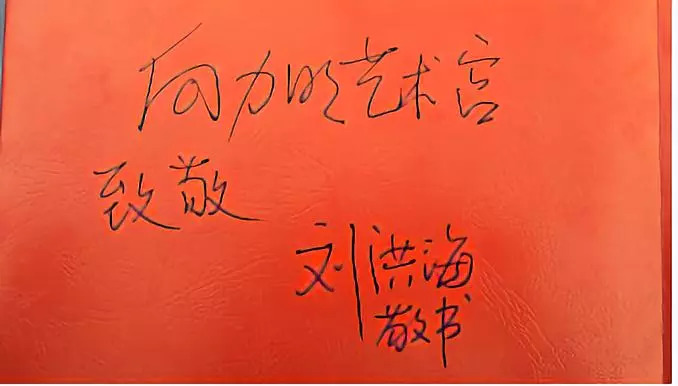 向力明艺术宫
致敬
刘洪海
敬书